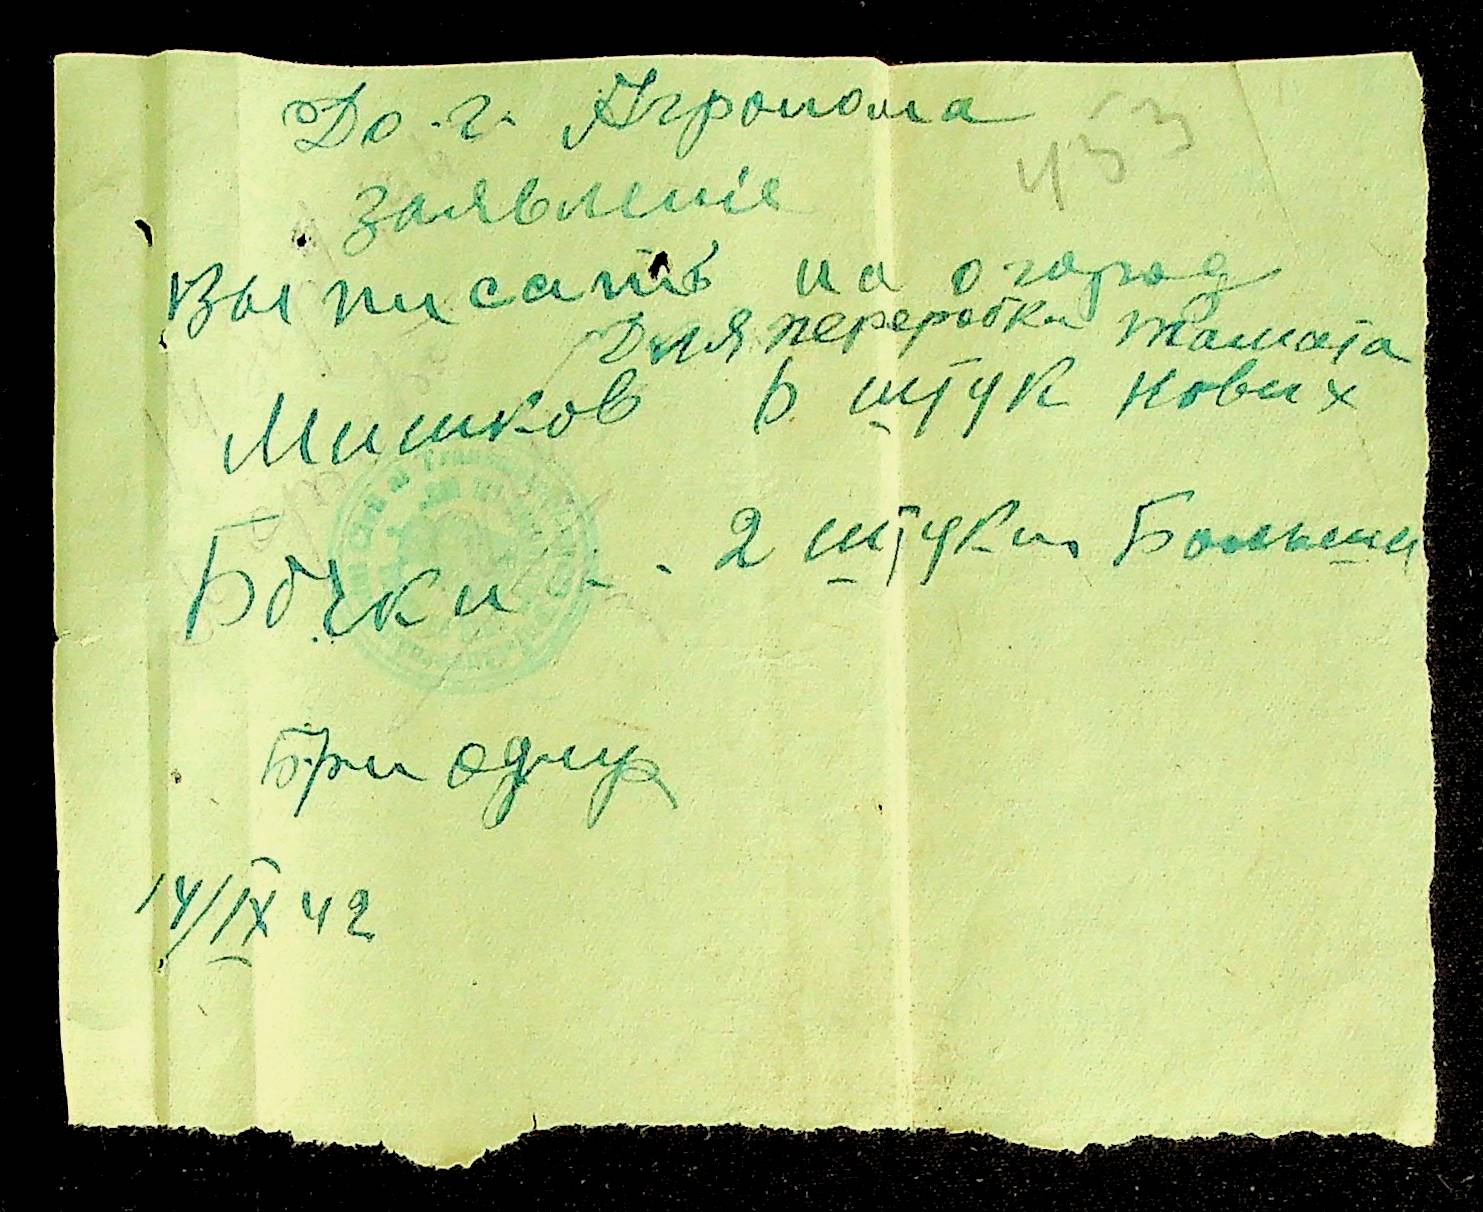 До г. Агронома
453
заявленіе
Выписать на огород
для переробки томата
Мишков 6 штук нових
Бочки - . 2 штуки Больши
14/IX 42